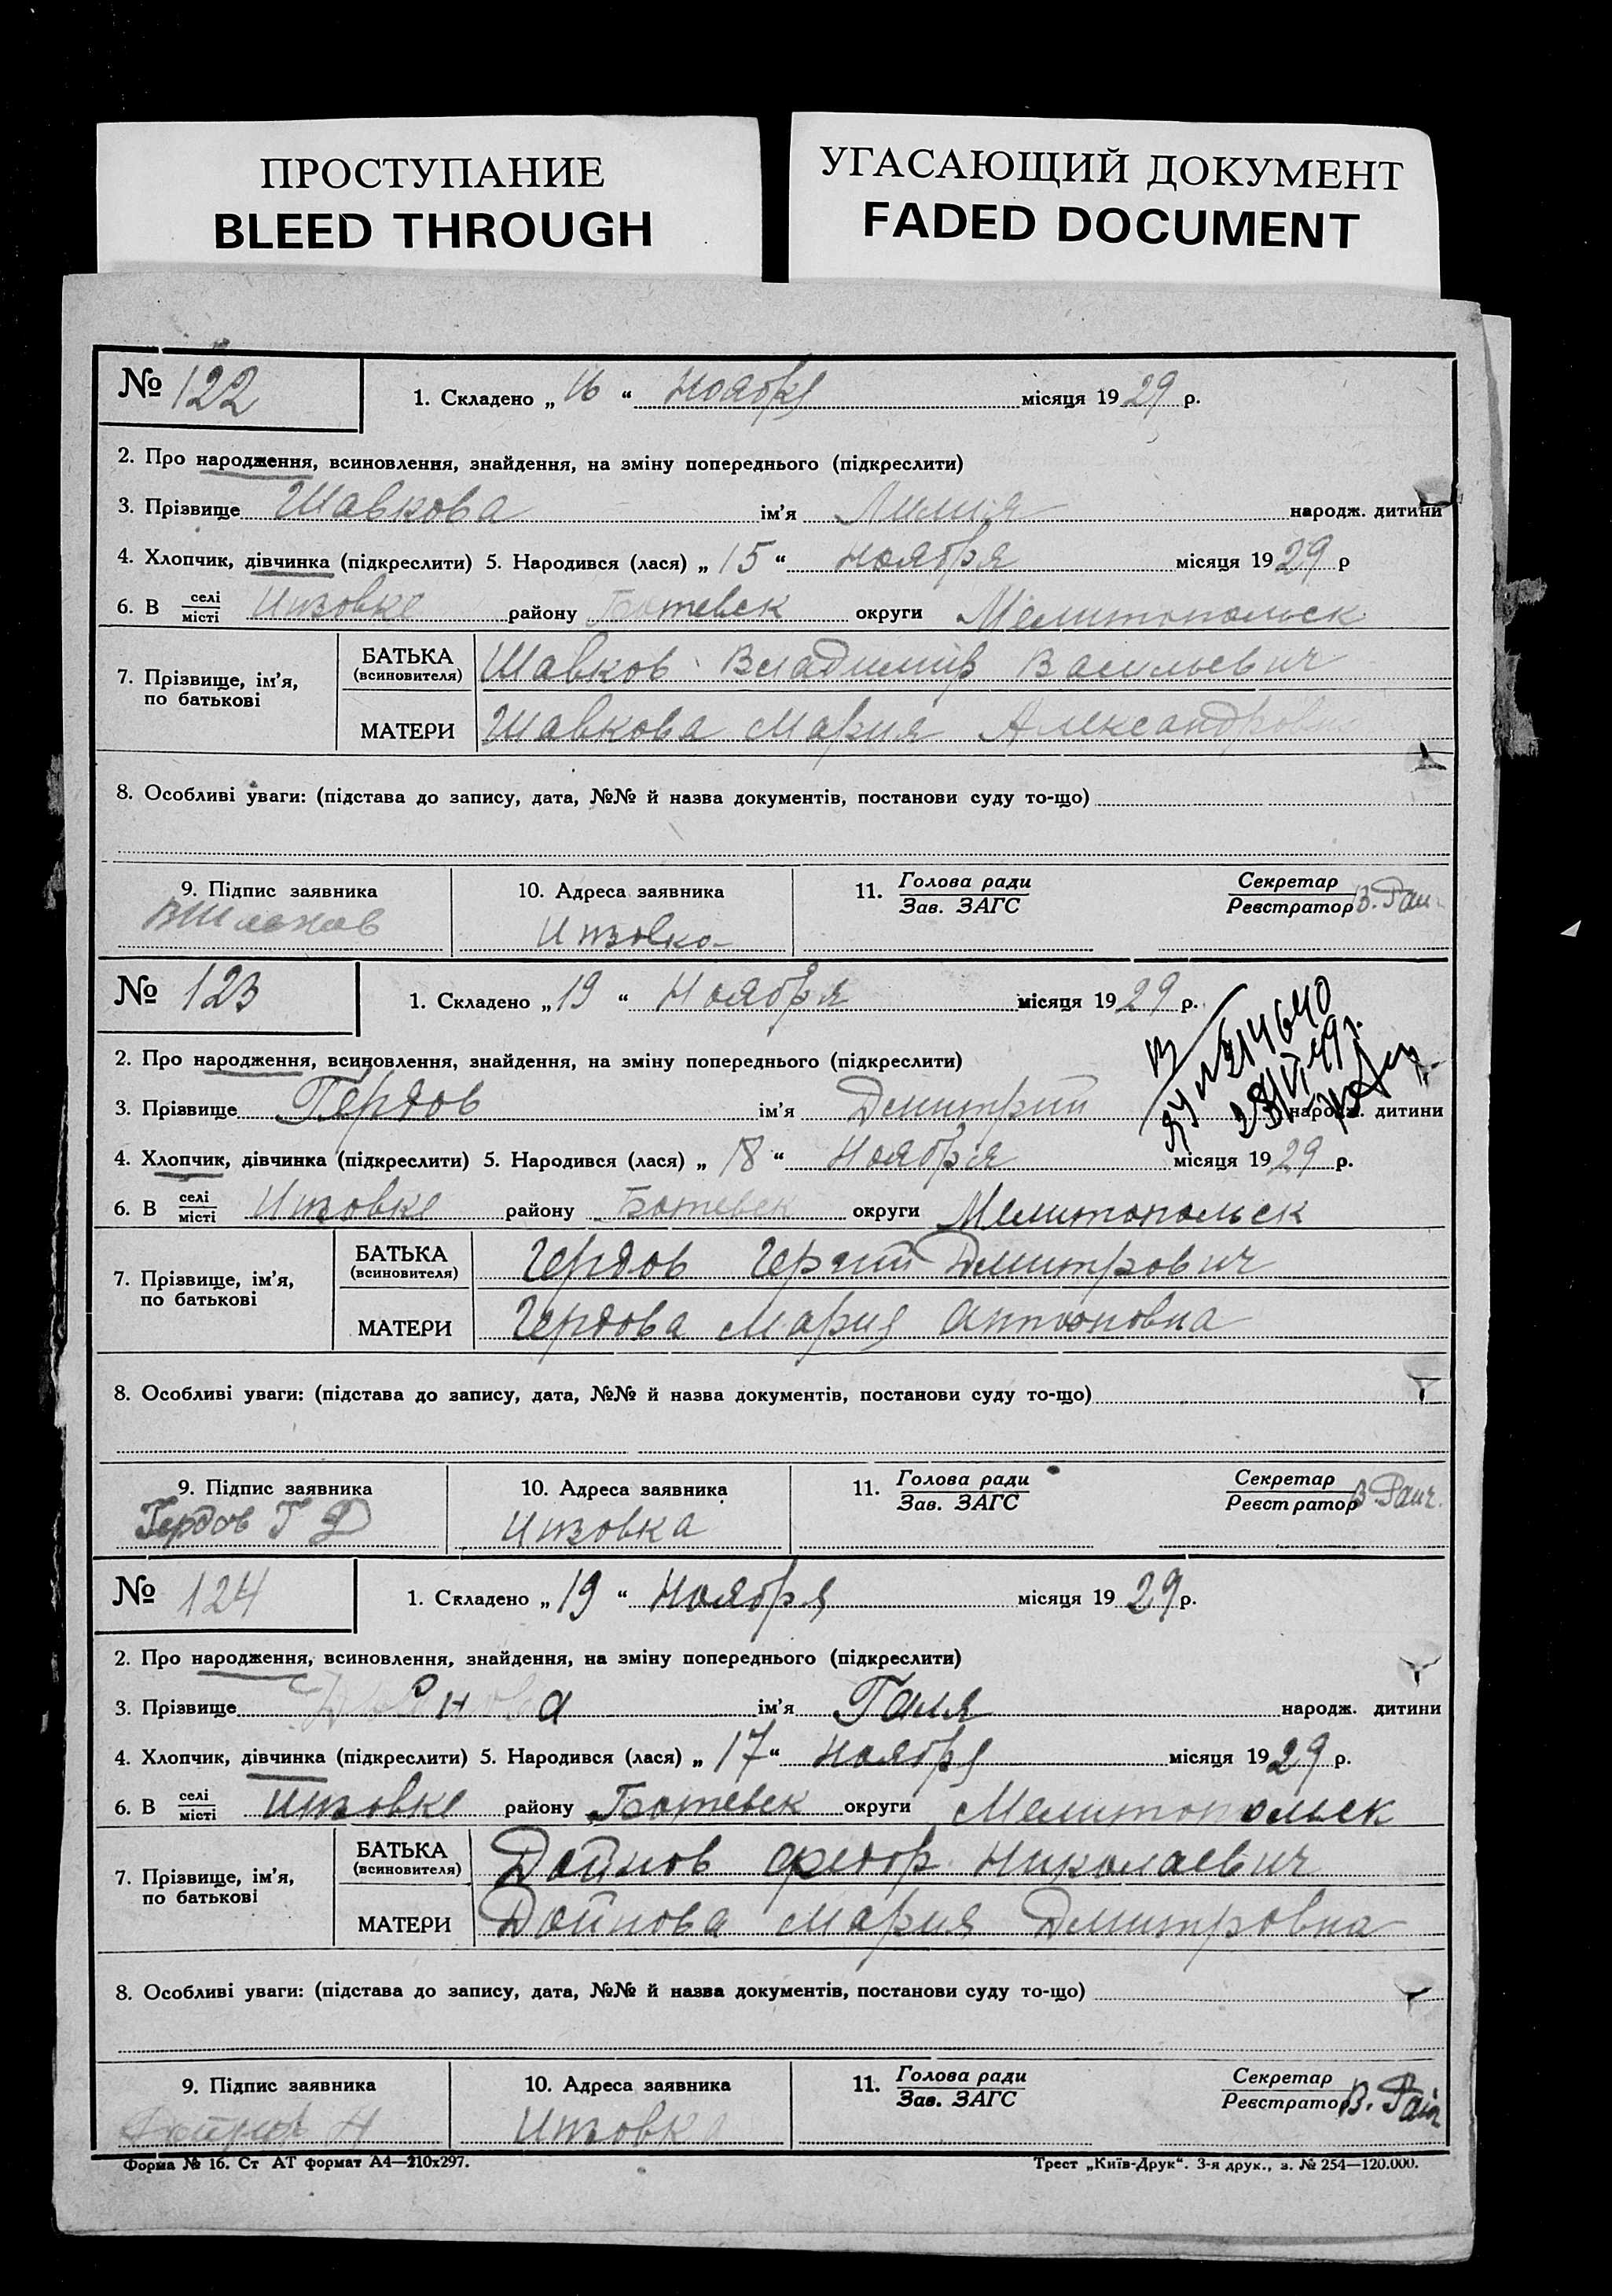 ПРОСТУПАНИЕ
BLEED THROUGH
УГАСАЮЩИЙ ДОКУМЕНТ
FADED DOCUMENT
№ 122 1. Складено „ 16 “ Ноября місяця 19 29 р.
2. Про народження, всиновлення, знайдення, на зміну попереднього (підкреслити)
3. Прізвище Шавкова ім'я Лилия народж. дитини
4. Хлопчик, дівчинка (підкреслити) 5. Народився (лася) „ 15 “ Ноября місяця 19 29 р
6. В селі/місті району Ботевск округи Мелитопольск
7. Прізвище, ім'я, по батькові
БАТЬКА (всиновителя) Шавков Владимир Васильевич
МАТЕРИ Шавкова Мария Александровна
8. Особливі уваги: (підстава до запису, дата, №№ й назва документів, постанови суду то-що)
9. Підпис заявника 10. Адреса заявника 11. Голова ради/Зав. ЗАГС Секретар/Реєстратор
ВШавков
№ 123 1. Складено „ 19 “ Ноября місяця 19 29 р.
2. Про народження, всиновлення, знайдення, на зміну попереднього (підкреслити)
3. Прізвище Гердов ім'я Дмитрий народж. дитини
4. Хлопчик, дівчинка (підкреслити) 5. Народився (лася) „ 18 “ Ноября місяця 19 29 р.
6. В селі/місті району Ботевск округи Мелитопольск
7. Прізвище, ім'я, по батькові
БАТЬКА (всиновителя) Гердов Дмитрович
МАТЕРИ Гердова Мария Антоновна
8. Особливі уваги: (підстава до запису, дата, №№ й назва документів, постанови суду то-що)
9. Підпис заявника 10. Адреса заявника 11. Голова ради/Зав. ЗАГС Секретар/Реєстратор
Гердов Г Д
№ 124 1. Складено „ 19 “ Ноября місяця 19 29 р.
2. Про народження, всиновлення, знайдення, на зміну попереднього (підкреслити)
3. Прізвище ім'я Галя народж. дитини
4. Хлопчик, дівчинка (підкреслити) 5. Народився (лася) „ 17 “ Ноября місяця 19 29 р.
6. В селі/місті району Ботевск округи Мелитопольск
7. Прізвище, ім'я, по батькові
БАТЬКА (всиновителя) Дойнов Федор Николаевич
МАТЕРИ Дойнова Мария Дмитровна
8. Особливі уваги: (підстава до запису, дата, №№ й назва документів, постанови суду то-що)
9. Підпис заявника 10. Адреса заявника 11. Голова ради/Зав. ЗАГС Секретар/Реєстратор
Форма № 16. Ст АТ формат А4—210х297. Трест „Київ-Друк“. 3-я друк., з. № 254—120.000.